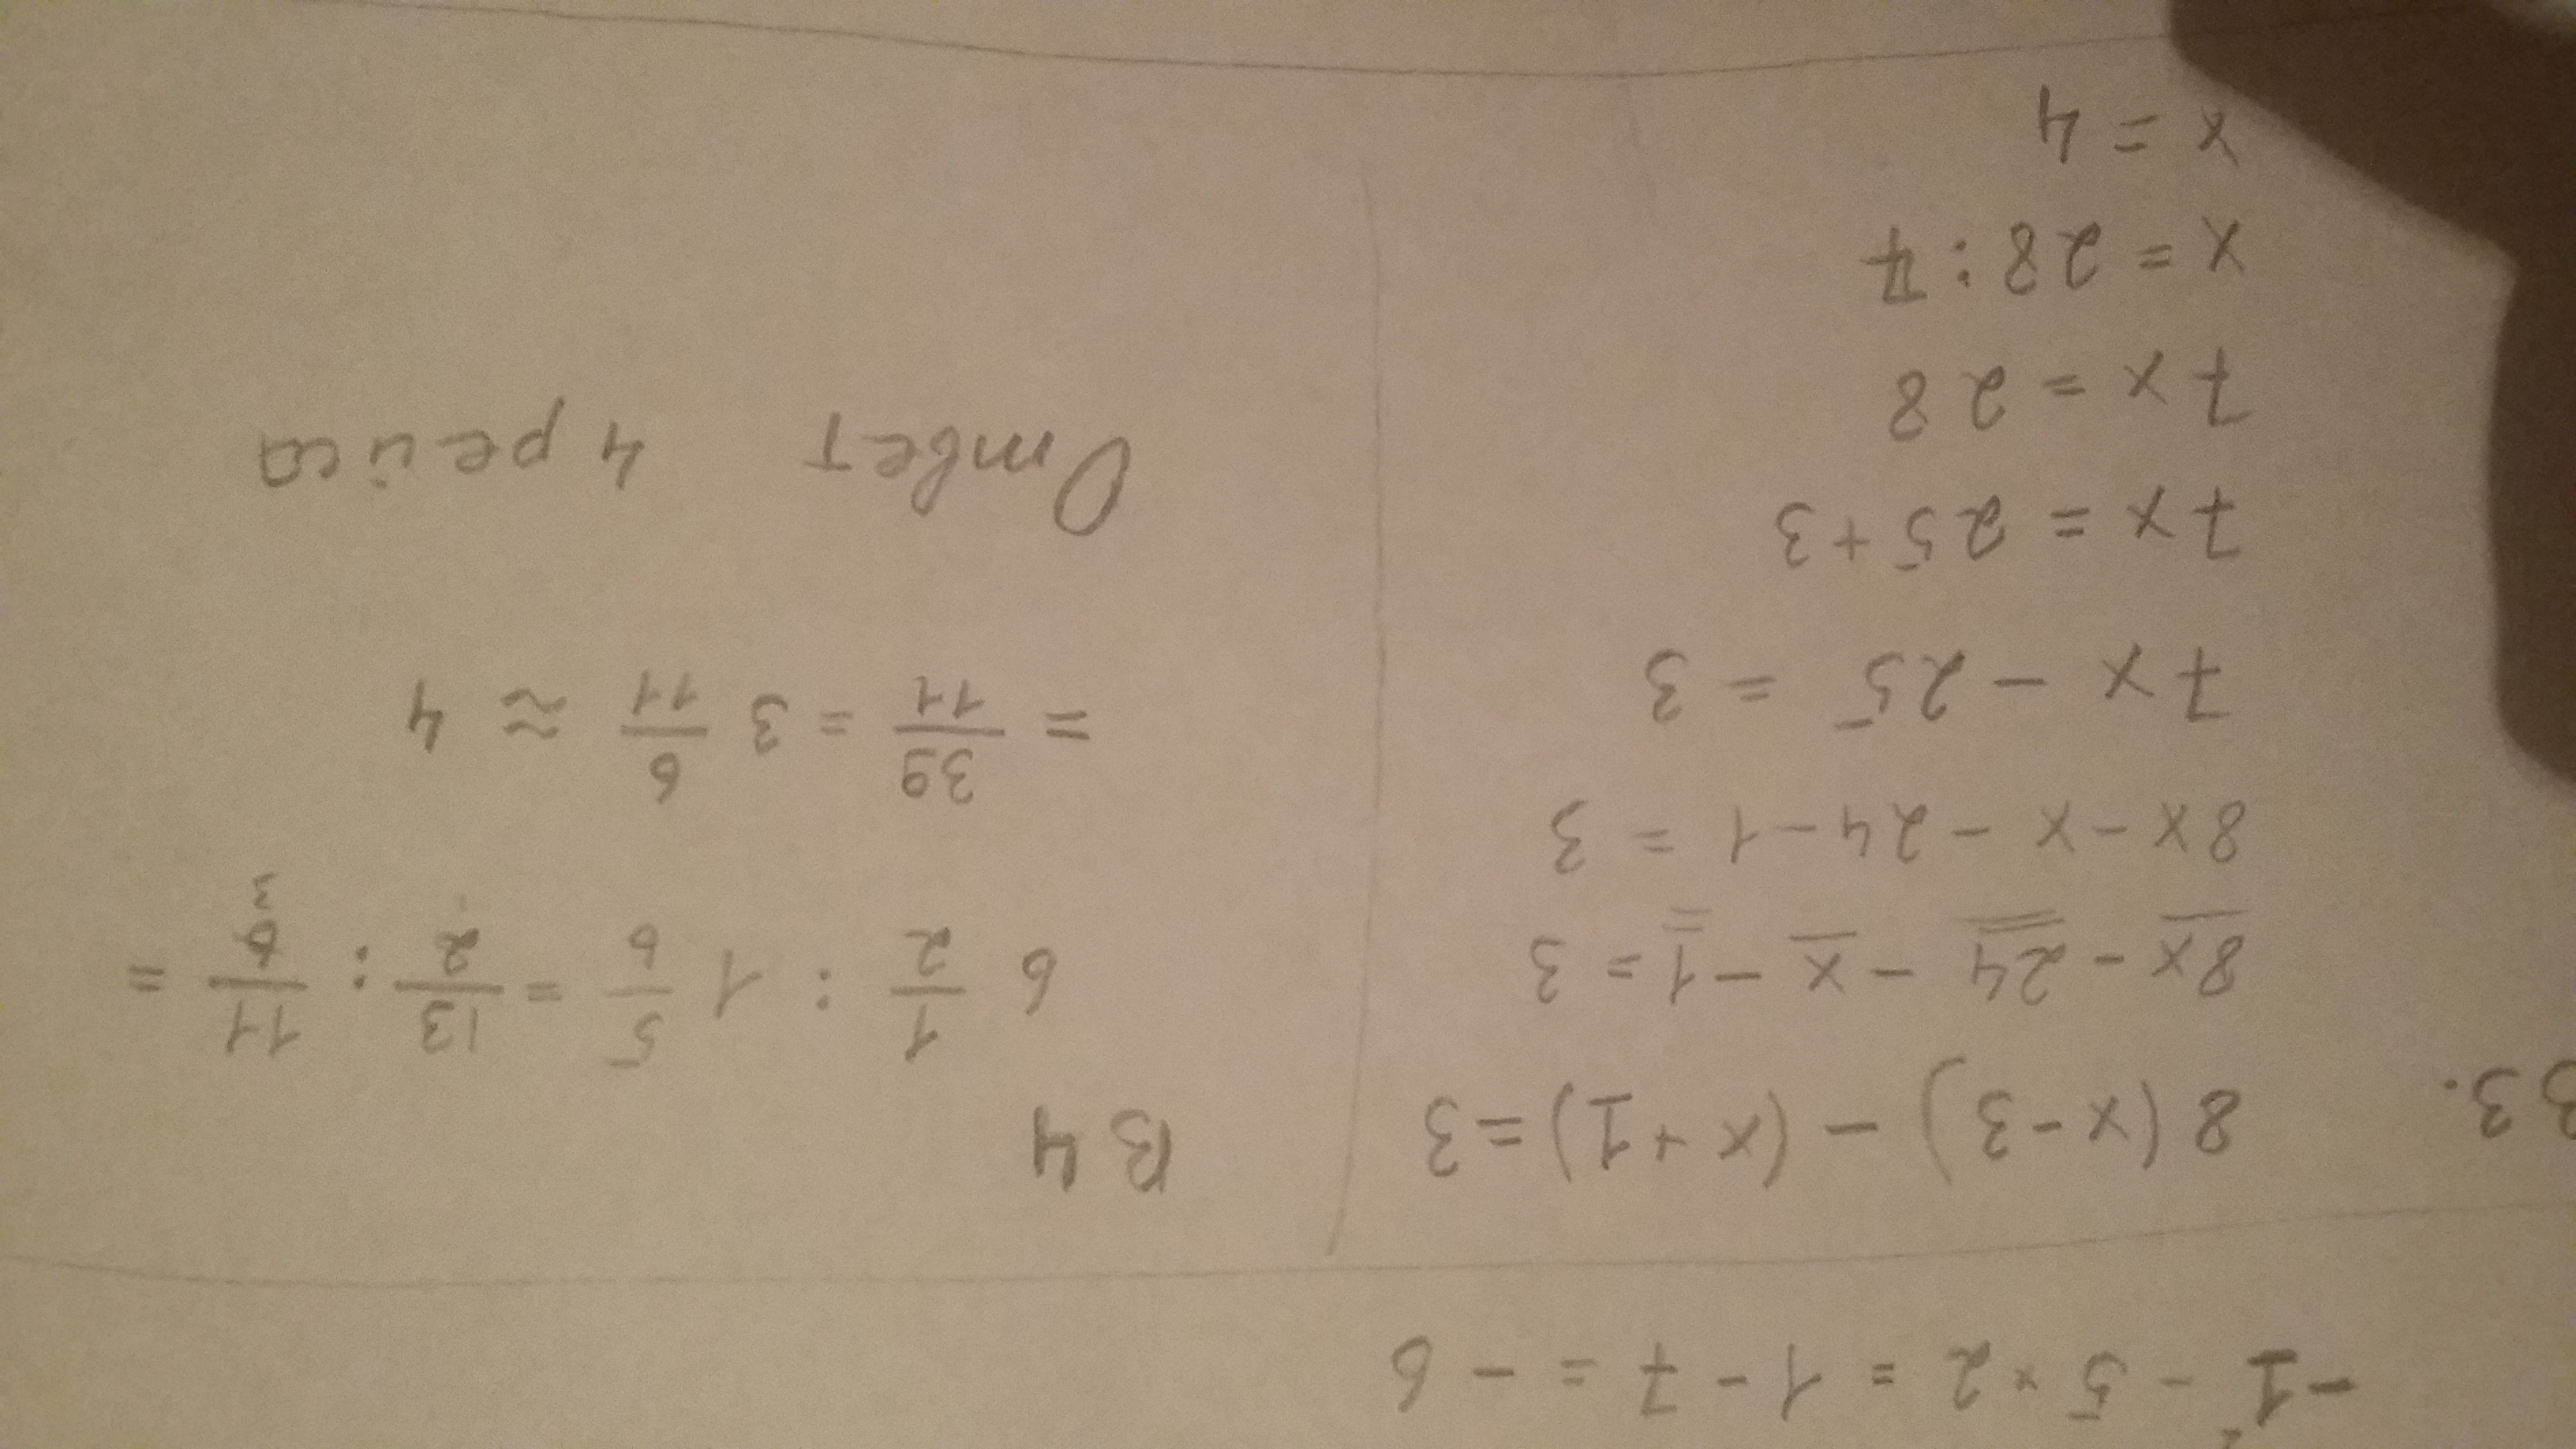 -1² - 5 × 2 = 1 - 7 = - 6
B 3.
8 (x - 3) - (x + 1) = 3
8x - 24 - x - 1 = 3
8x - x - 24 - 1 = 3
7x - 25 = 3
7x = 25 + 3
7x = 28
x = 28 : 7
x = 4
B 4
6 1/2 : 1 5/6 = 13/2 : 11/6 3 =
= 39/11 = 3 6/11 ≈ 4
Ответ 4 рейса